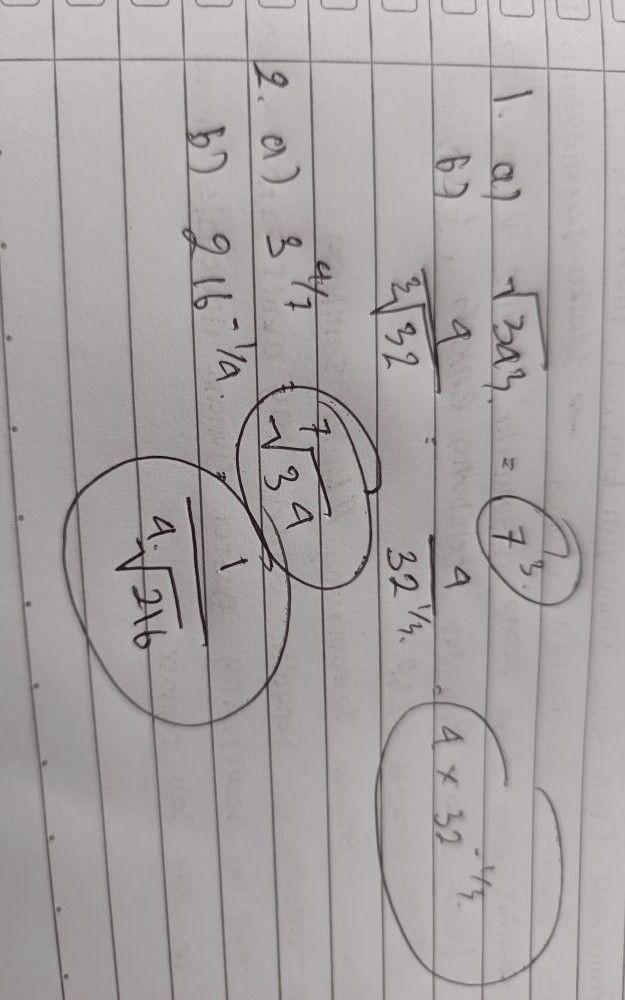 1. a) √343 = 7³.
b) 4/∛32 = 4/32^1/3. = 4 × 32^-1/3.
2. a) 3^4/7 = ⁷√3⁴
b) 216^-1/4. = 1/⁴√216